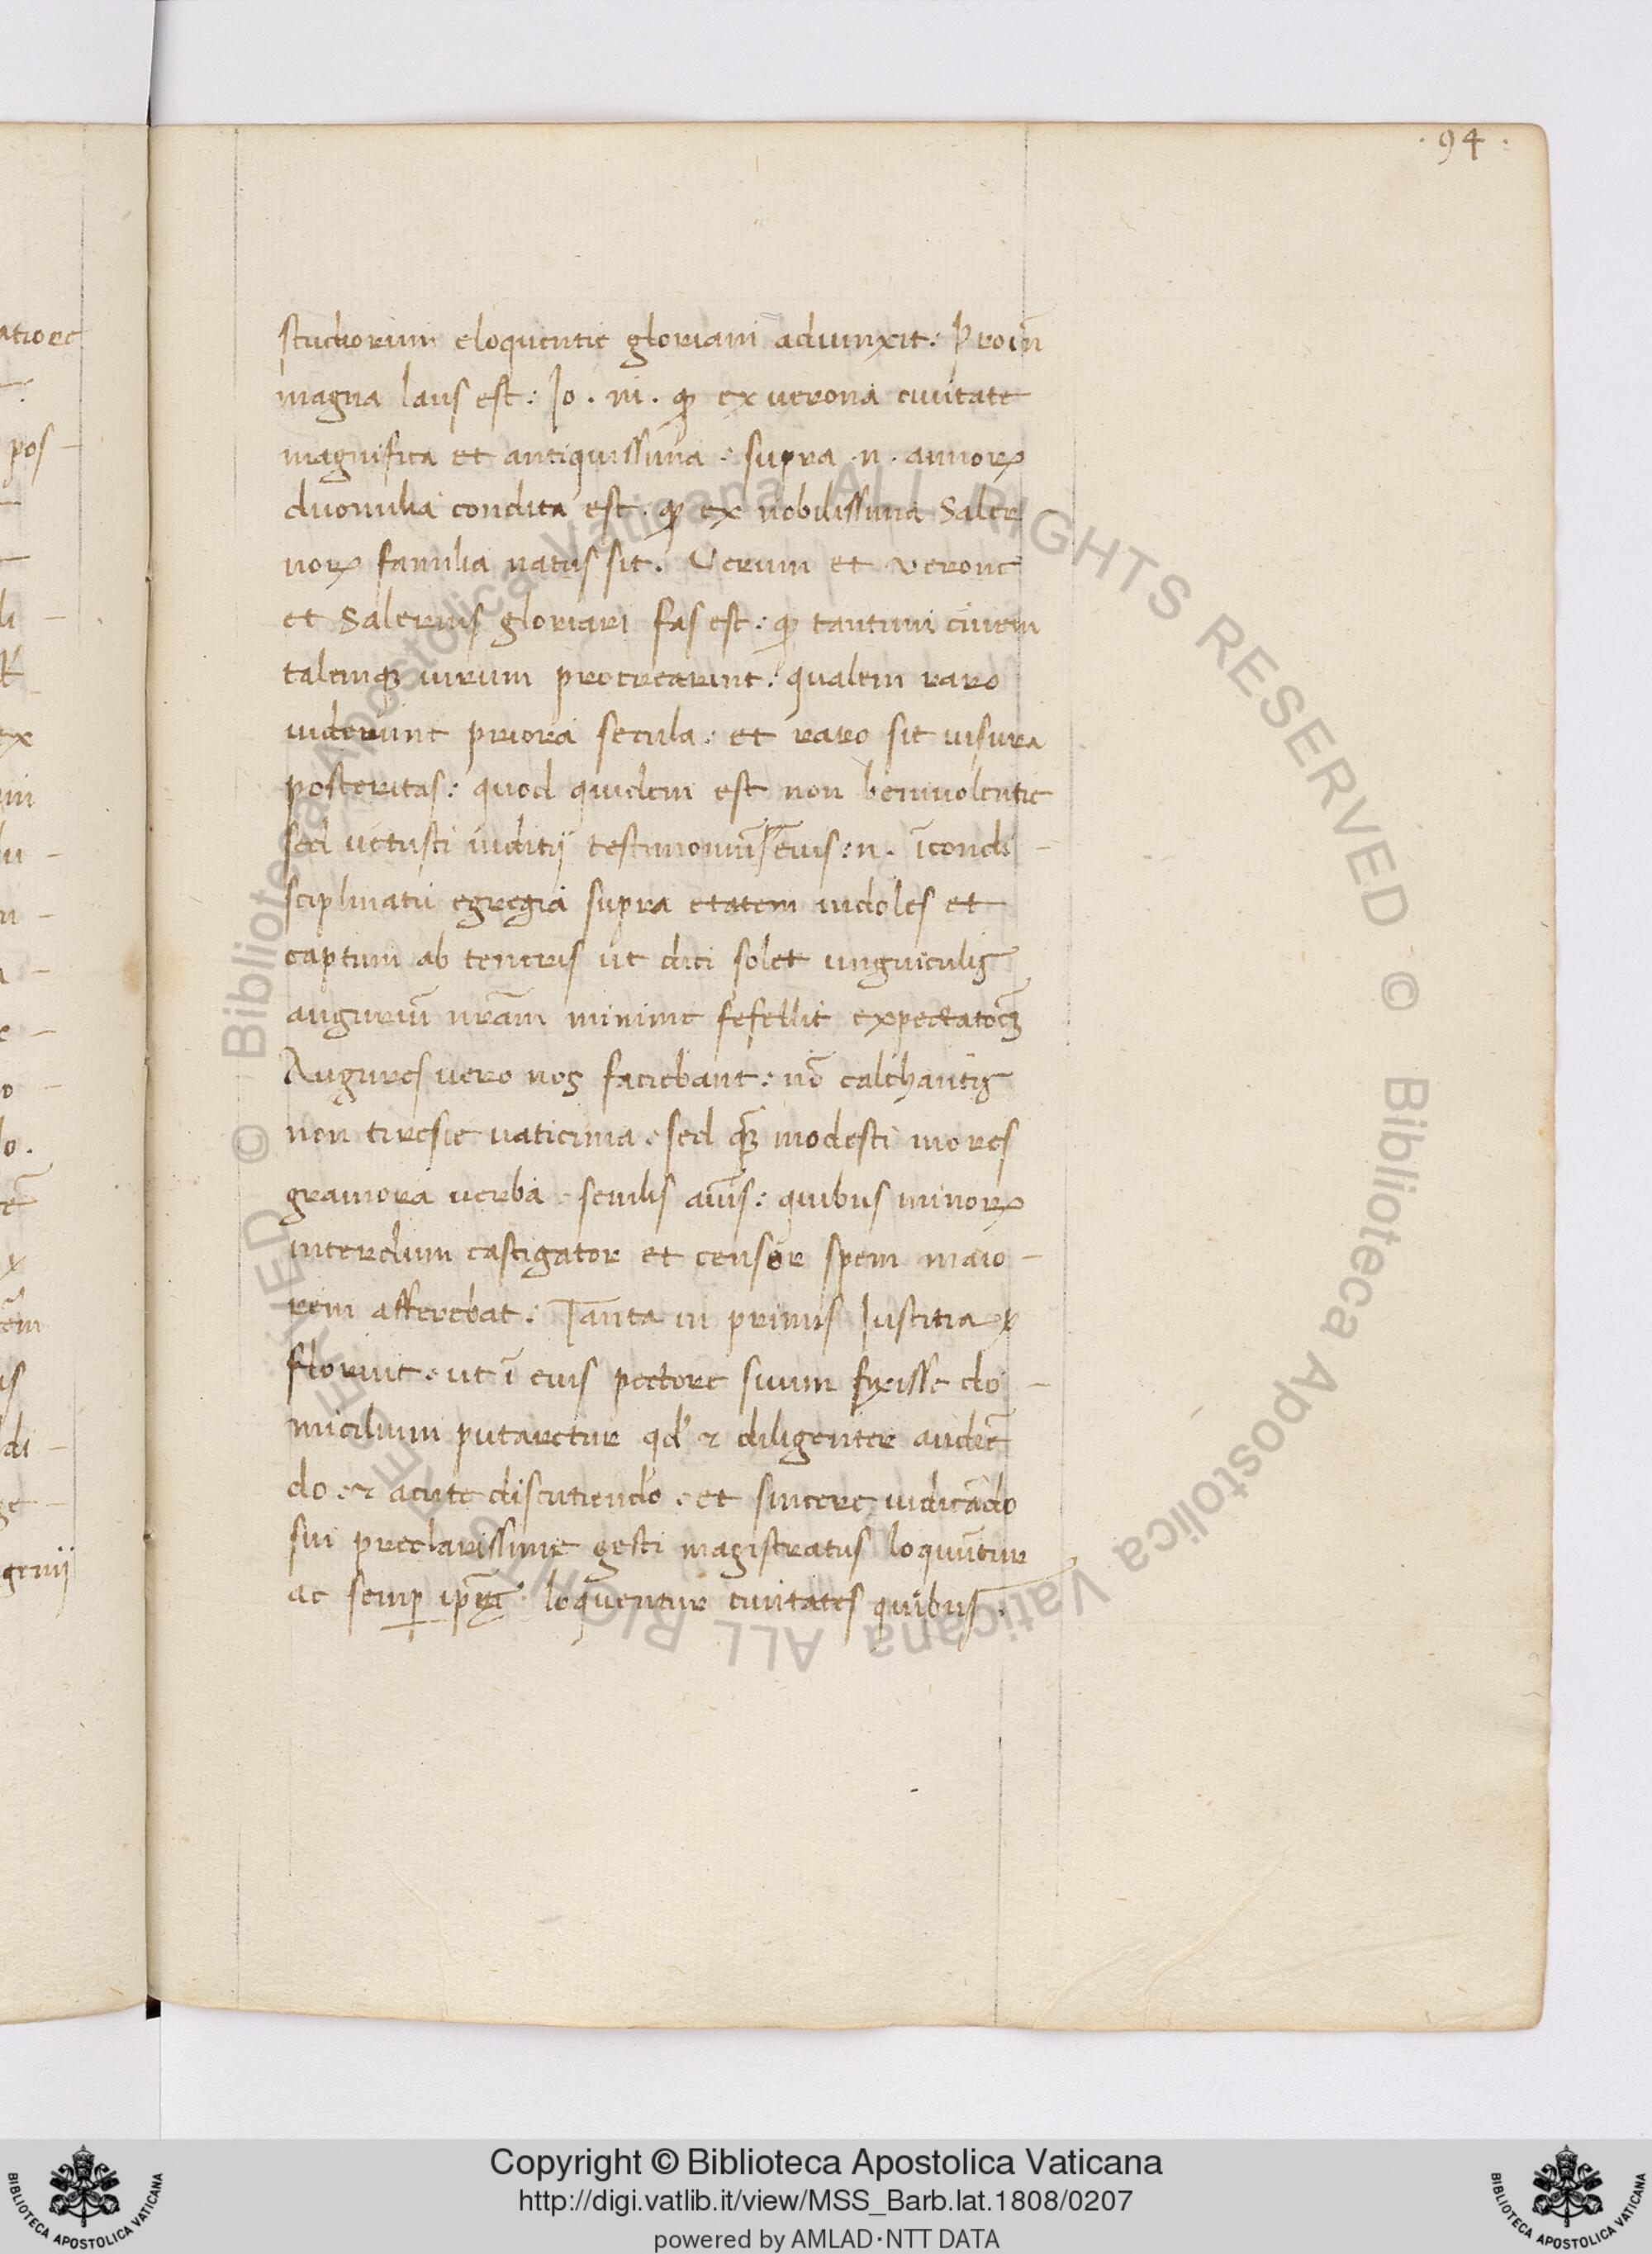 .94.
studiorum eloquentie gloriam adiunxit: Proin̄
magna laus est: Jo. m. ꝙ ex uerona ciuitate
magnifica et antiquissima. supra .n. annoꝝ
duomilia condita est. ꝙ ex nobilissima Saler
noꝝ familia natus sit. Verum et verone
et Salernis gloriari fas est: ꝙ tantum ciuem
talemqꝫ uirum procrearint: qualem raro
uiderunt priora secula: et raro sit uisura
posteritas: quod quidem est non beniuolentie
sed uetusti iuditij testimoniū eius: n. ī condi-
sciplinatu egregia supra etatem indoles et
captum ab teneris ut dici solet unguiculis
auguriū nrām minime fefellit
Augures uero nos faciebant: nō calchantis
non tiresie uaticinia. sed modesti mores
grauiora uerba. senilis: quibus minoꝝ
interdum castigator et censor spem maio-
rem afferebat: Tanta in primis Iustitia
floruit. ut ī eius pectore suum fixisse do-
micilium putaretur qd' ⁊ diligenter audiē
do. ⁊ acute discutiendo. et sincere iudicādo
sui preclarissime gesti magistratus loquūtur
ac semꝑ loquentur ciuitates quibus.
atiore
pos-
li-
ex
di-
genij
Copyright © Biblioteca Apostolica Vaticana
http://digi.vatlib.it/view/MSS_Barb.lat.1808/0207
powered by AMLAD·NTT DATA
© Biblioteca Apostolica Vaticana ALL RIGHTS RESERVED
© Biblioteca Apostolica Vaticana ALL RIGHTS RESERVED
BIBLIOTECA APOSTOLICA VATICANA
BIBLIOTECA APOSTOLICA VATICANA